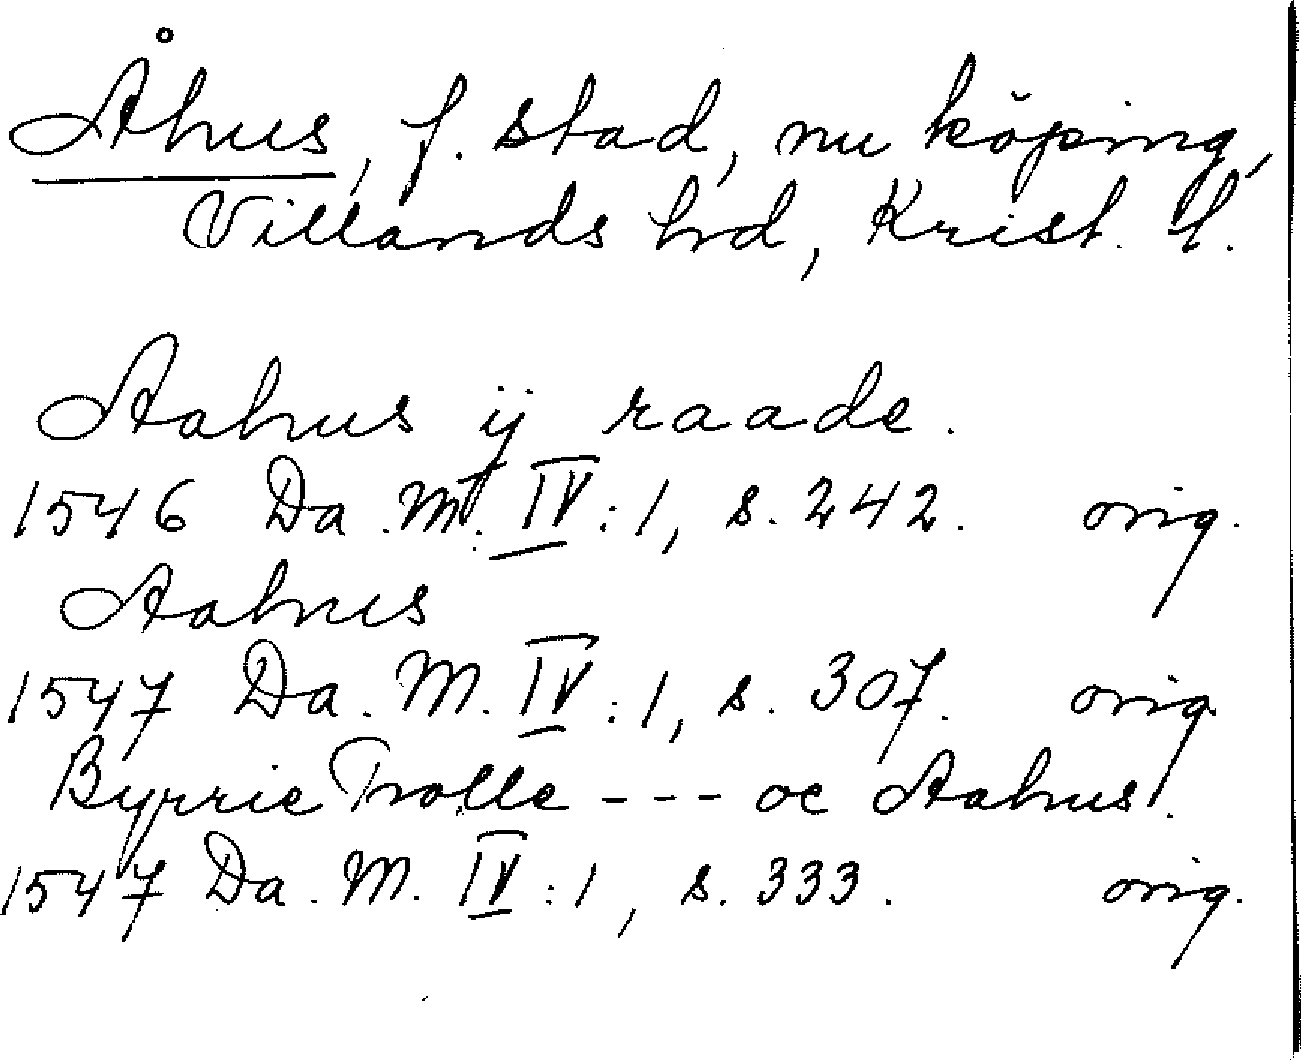 Åhus, f. stad, nu köping,
Villands hrd, Krist. l.
Aahus ij raade.
1546 Da. M. IV:1, s. 242. orig.
Aahus
1547 Da. M. IV:1, s. 307. orig.
Byrrie Trolle --- oc Aahus.
1547 Da. M. IV:1, s. 333. orig.